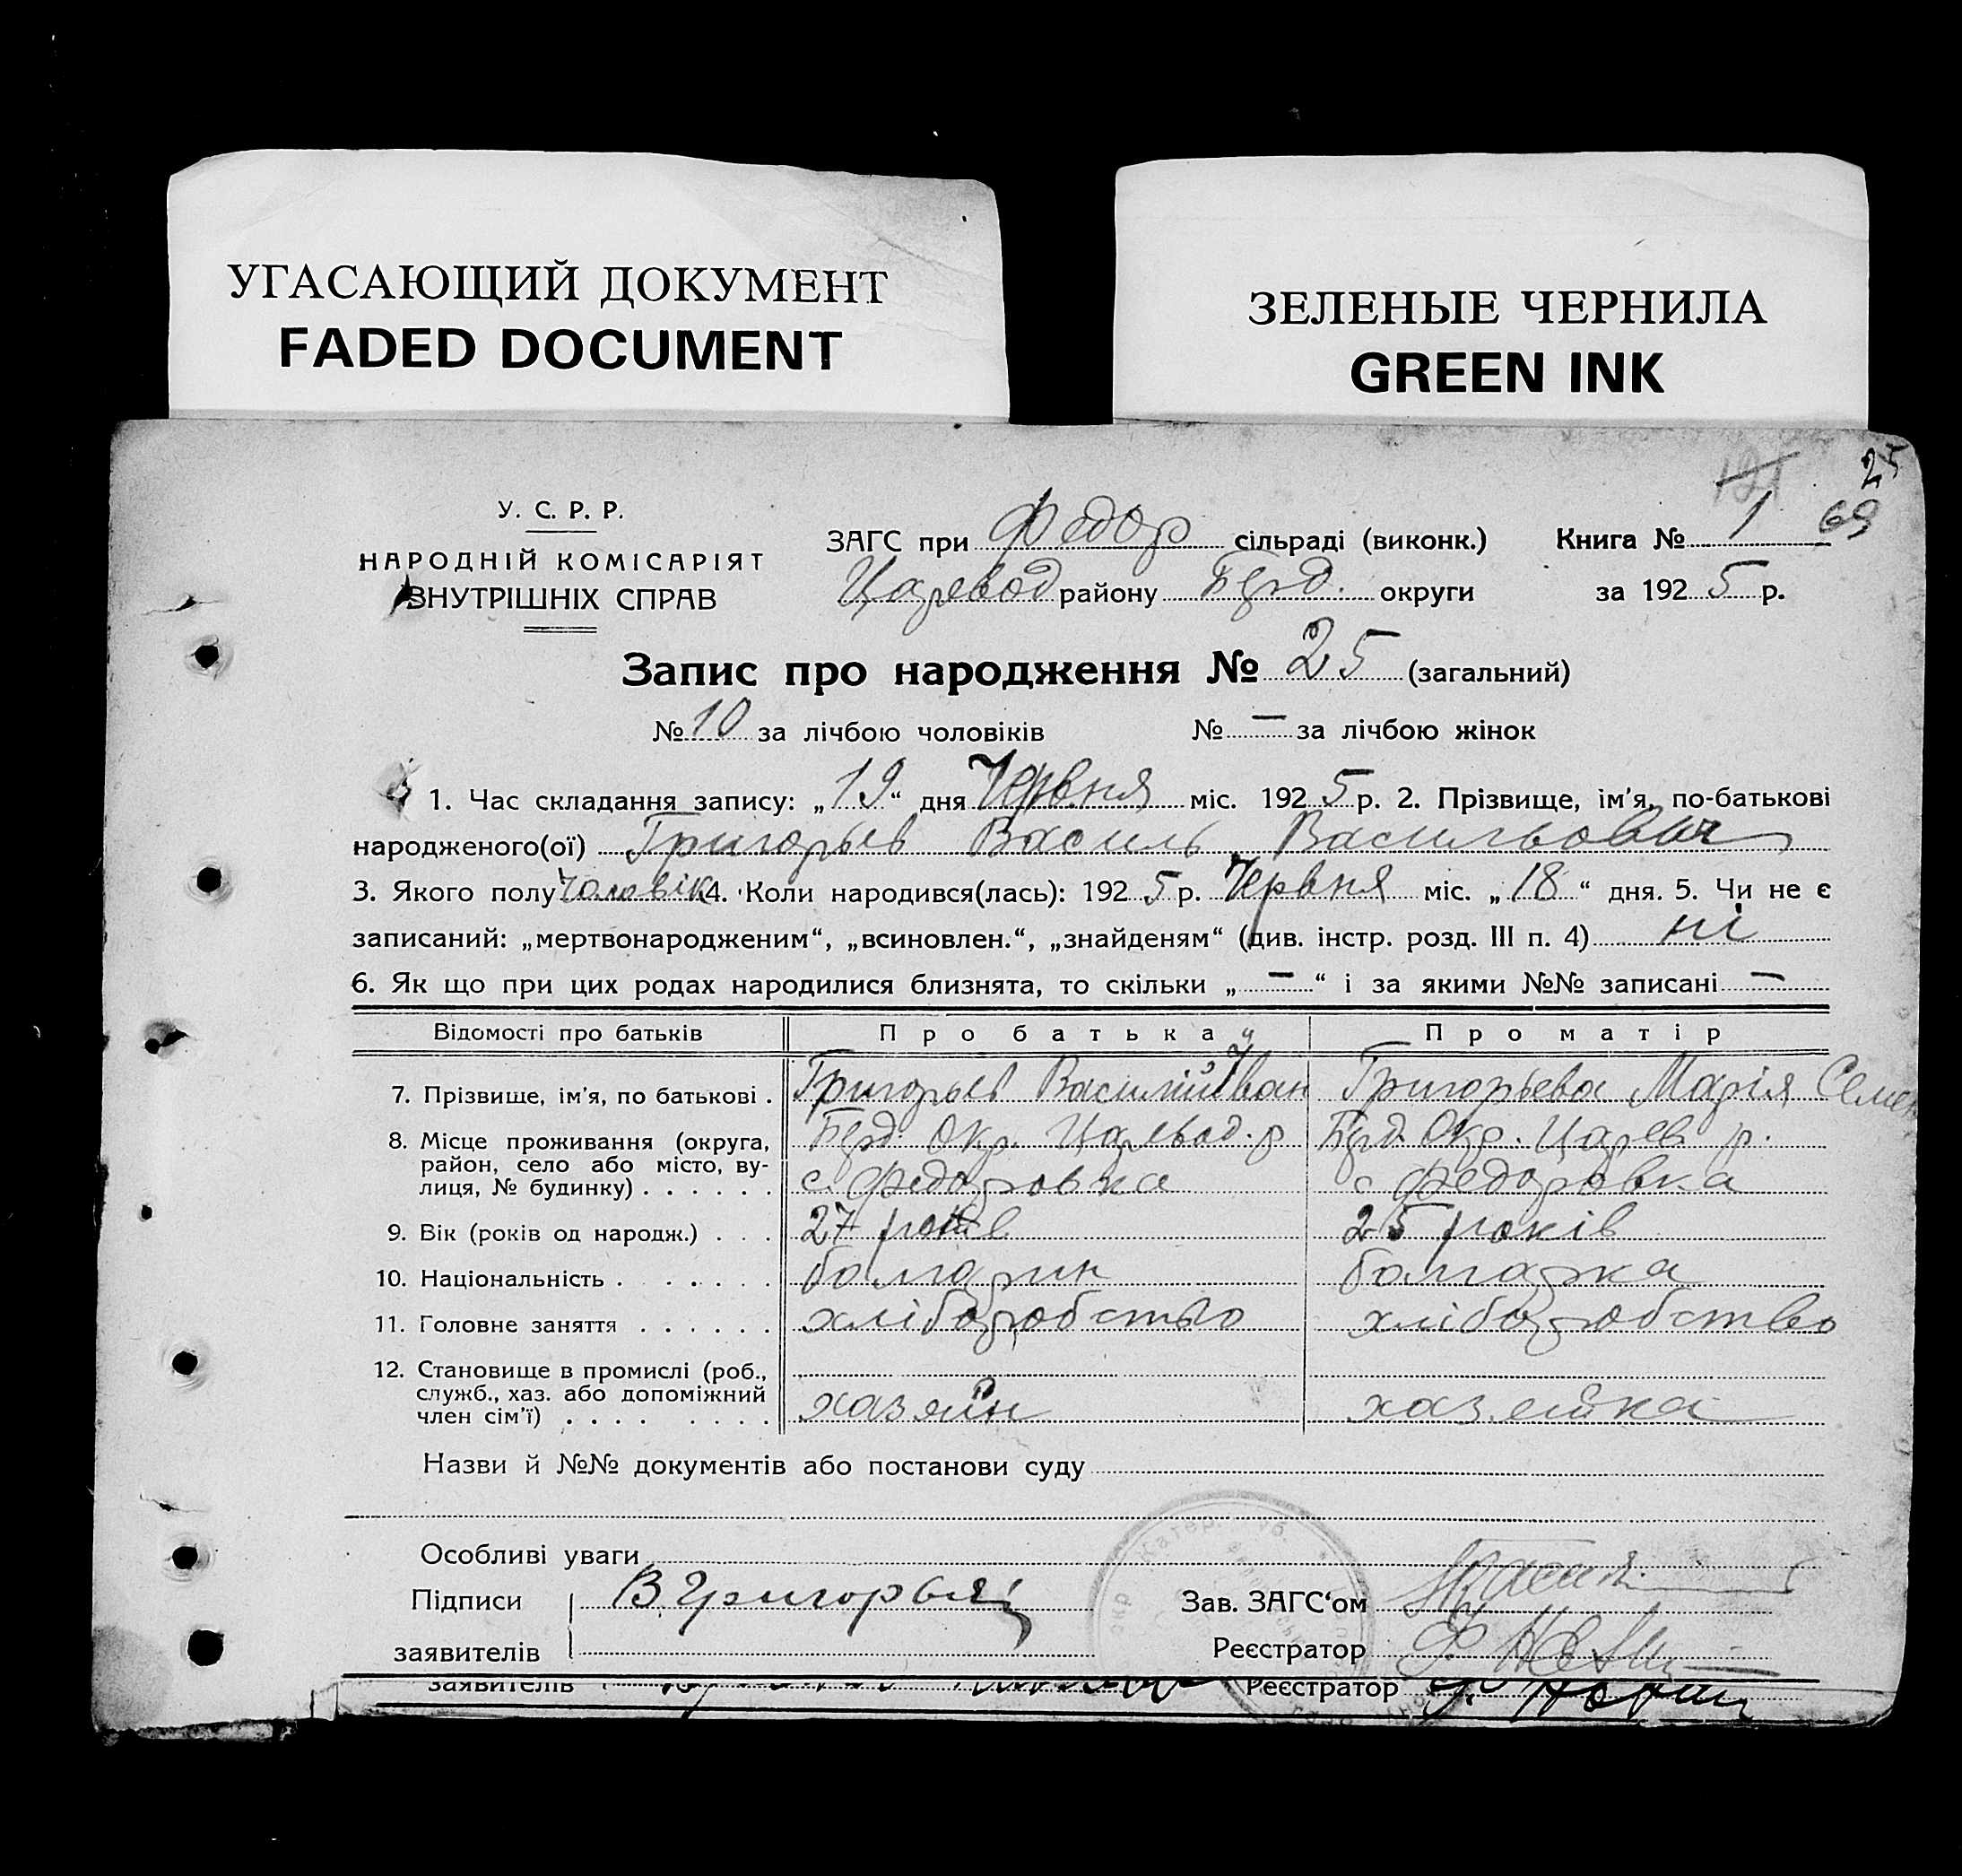 УГАСАЮЩИЙ ДОКУМЕНТ
FADED DOCUMENT
ЗЕЛЕНЫЕ ЧЕРНИЛА
GREEN INK
25
121
69
У. С. Р. Р.
НАРОДНІЙ КОМІСАРІЯТ
ВНУТРІШНІХ СПРАВ
ЗАГС при Федор сільраді (виконк.) Книга № 1
Царевод району Берд. округи за 1925 р.
Запис про народження № 25 (загальний)
№ 10 за лічбою чоловіків № — за лічбою жінок
1. Час складання запису: „19“ дня Червня міс. 1925 р. 2. Прізвище, ім'я, по-батькові
народженого(ої) Григорьев Василь Васильович
3. Якого полу Чоловік 4. Коли народився(лась): 1925 р. Червня міс. „18“ дня. 5. Чи не є
записаний: „мертвонародженим“, „всиновлен.“, „знайденям“ (див. інстр. розд. III п. 4) ні
6. Як що при цих родах народилися близнята, то скільки „—“ і за якими №№ записані —
Відомості про батьків Про батька Про матір
7. Прізвище, ім'я, по батькові . Григорьев Василий Иван Григорьева Марія Семен
8. Місце проживання (округа, Берд. Окр. Царевод. р Берд. Окр. Царев р.
район, село або місто, ву-
лиця, № будинку) . . . . . . с. Федоровка с Федоровка
9. Вік (років од народж.) . . . 27 років 25 років
10. Національність . . . . . . болгарин болгарка
11. Головне заняття . . . . . . хліборобство хліборобство
12. Становище в промислі (роб.,
служб., хаз. або допоміжний
член сім'ї) . . . . . . . . хазяин хазяйка
Назви й №№ документів або постанови суду
Особливі уваги
Підписи В. Григорьев Зав. ЗАГС'ом
заявителів Реєстратор
заявителів Реєстратор